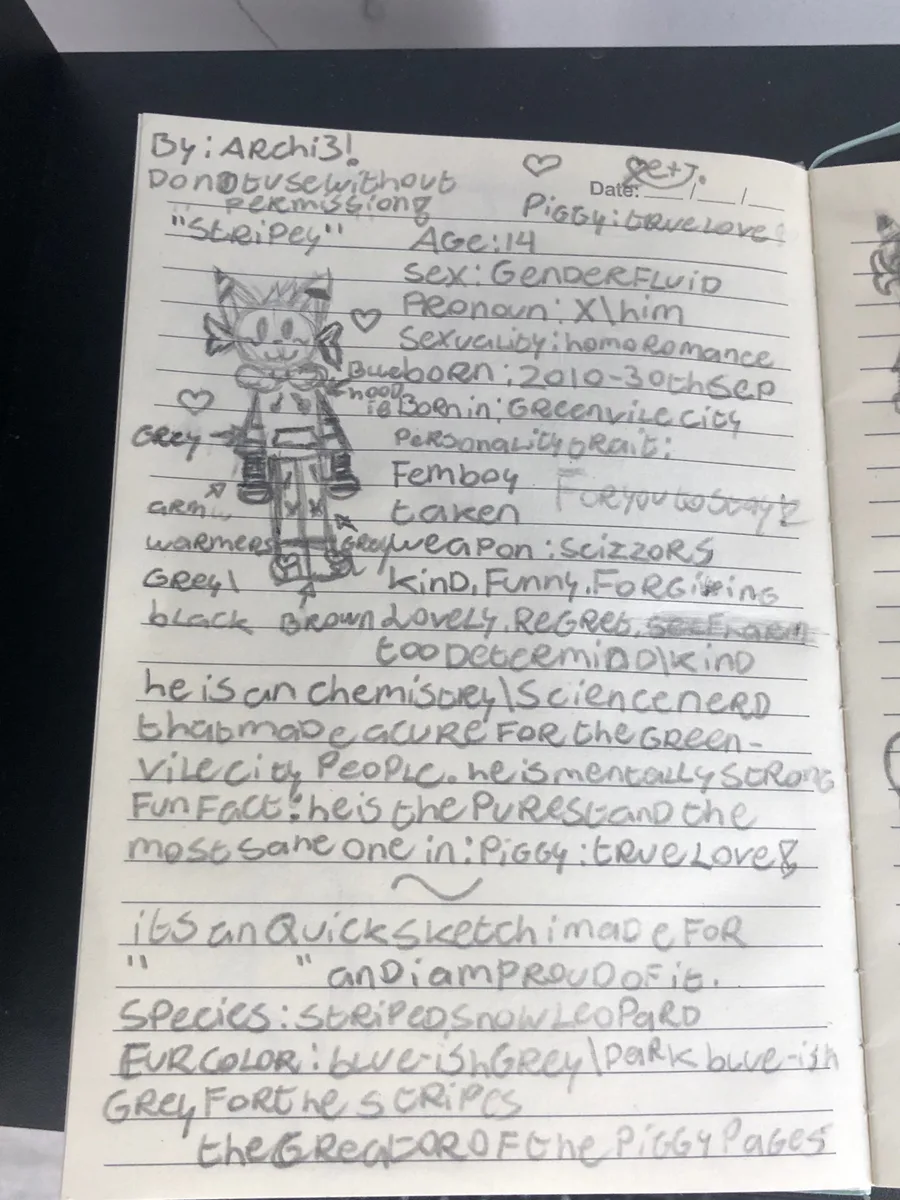 By: ARchi3!
Do not use without
permission!
Date: __/__/__
Piggy: true love!
"Stripey"
Age: 14
Sex: Genderfluid
Pronoun: X\him
Sexuality: homoromance
Blue
hood
born: 2010-30th Sep
Born in: Greenvile city
Grey
Personality trait:
Femboy
For you to say!
taken
arm
warmers
Grey
weapon: Scizzors
Grey\
black
Kind, Funny, Forgiving
Brown
Lovely, Regret,
too Determind\kind
he is an chemistry\Science nerd
that made a cure for the Green-
vile city People. he is mentally strong
Fun Fact: he is the Purest and the
most sane one in: Piggy: true Love!
its an Quick sketch i made for
" " and i am Proud of it.
Species: striped snow leopard
Fur color: blue-ish Grey\Dark blue-ish
Grey for the stripes
the Creator of the Piggy Pages